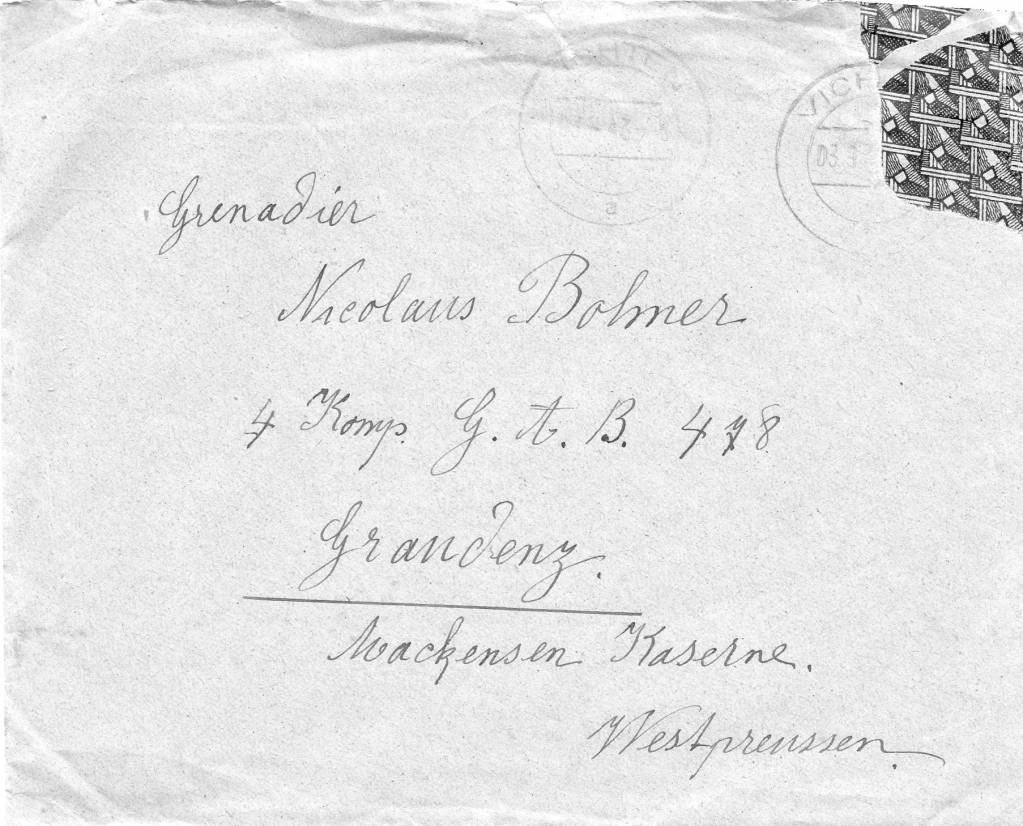 VICH
03.3
a
Grenadier
Nicolaus Bohmer
4 Komp. G. A. B. 478
Graudenz.
Mackensen Kaserne.
Westpreussen.